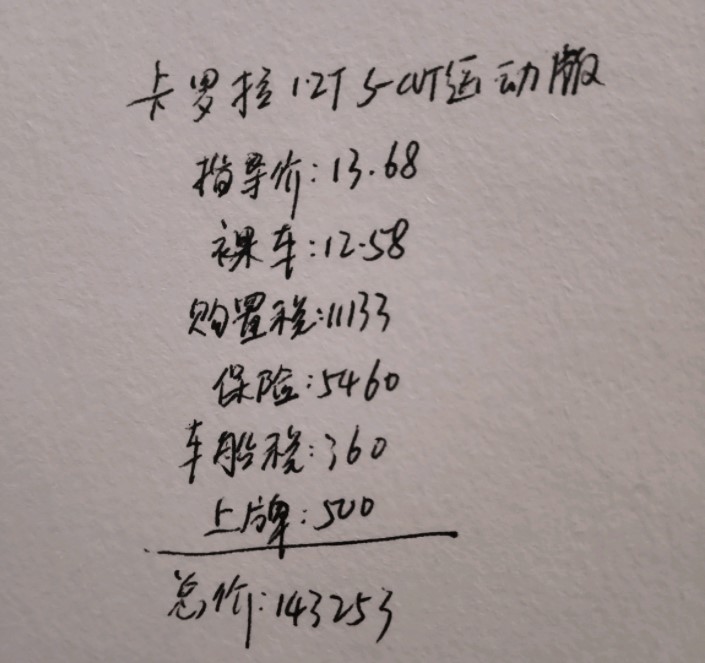 卡罗拉 1.2T S-CVT运动版
指导价:13.68
裸车:12.58
购置税:11133
保险:5460
车船税:360
上牌:500
总价:143253